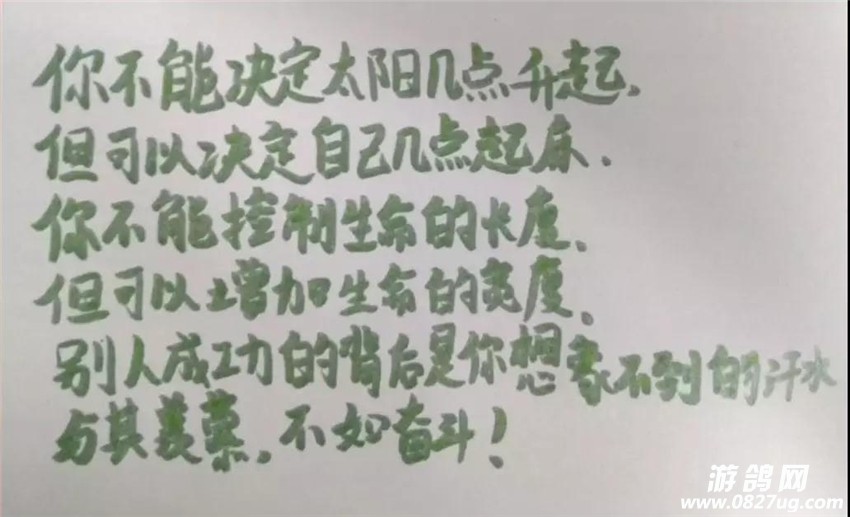 你不能决定太阳几点升起,
但可以决定自己几点起床.
你不能控制生命的长度、
但可以增加生命的宽度、
别人成功的背后是你想象不到的汗水
与其羡慕,不如奋斗!
游鸽网
www.0827ug.com